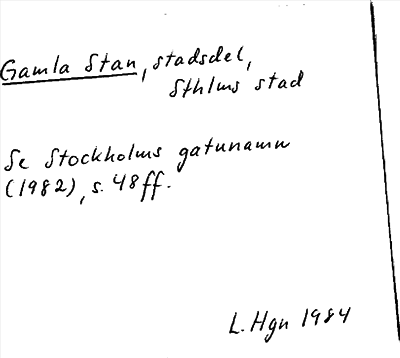 Gamla Stan, stadsdel,
Sthlms stad
Se Stockholms gatunamn
(1982), s. 48ff.
L. Hgn 1984